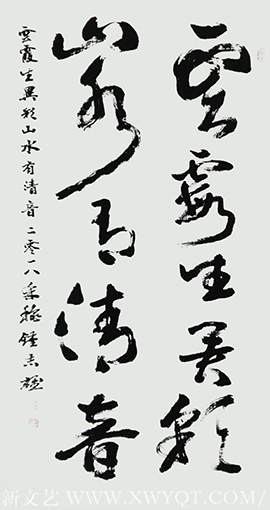 雲霞生異彩
山水有清音
雲霞生異彩山水有清音二零一八年
新文艺 WWW.XWYQT.COM/